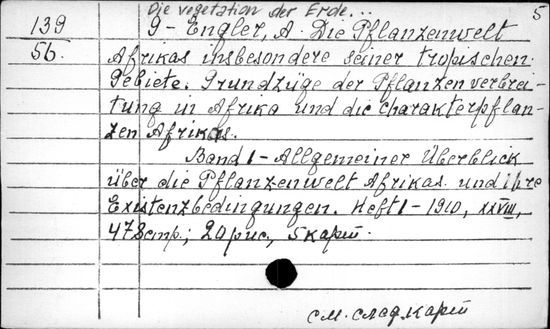 Die vegetation der Erde...
5
139
56.
9- Engler, A. Die Pflanzenwelt
Afrikas insbesondere seiner tropischen
Gebiete. Grundzüge der Pflanzenverbrei-
tung in Afrika und die charakterpflan-
zen Afrikas.
Band 1- Allgemeiner Überblick
über die Pflanzenwelt Afrikas und ihre
Existenzbedingungen. Heft 1 - 1910, XXVIII,
478 стр.; 20 рис., 5 карт.
см. след. карт